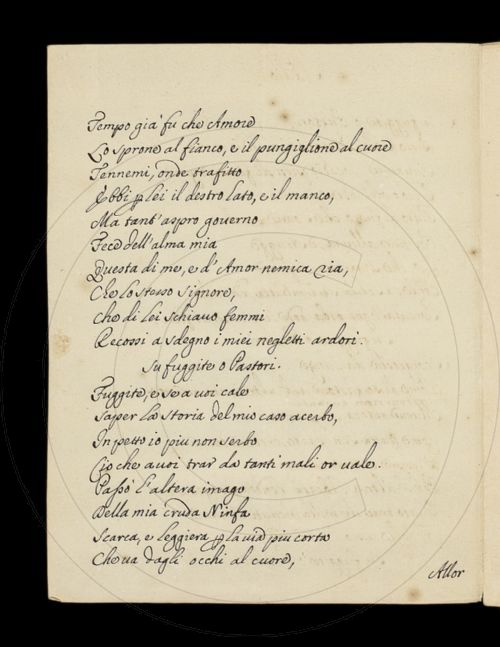 Tempo già fu che Amore
Lo sprone al fianco, e il pungiglione al cuore
Tennemi, onde trafitto
Ebbi p lei il destro lato, e il manco,
Ma tant' aspro governo
Fece dell'alma mia
Questa di me, e d'Amor nemica ria,
Che lo stesso Signore,
Che di lei schiavo femmi
Recossi a sdegno i miei negletti ardori.
Su fuggite o Pastori.
Fuggite, e se a voi cale
Saper la storia del mio caso acerbo,
In petto io piu non serbo
Ciò che a voi trar da tanti mali or vale.
Passò l'altera imago
Della mia cruda Ninfa
Scarca, e leggiera p la via piu corta
Che va dagli occhi al cuore,
Allor